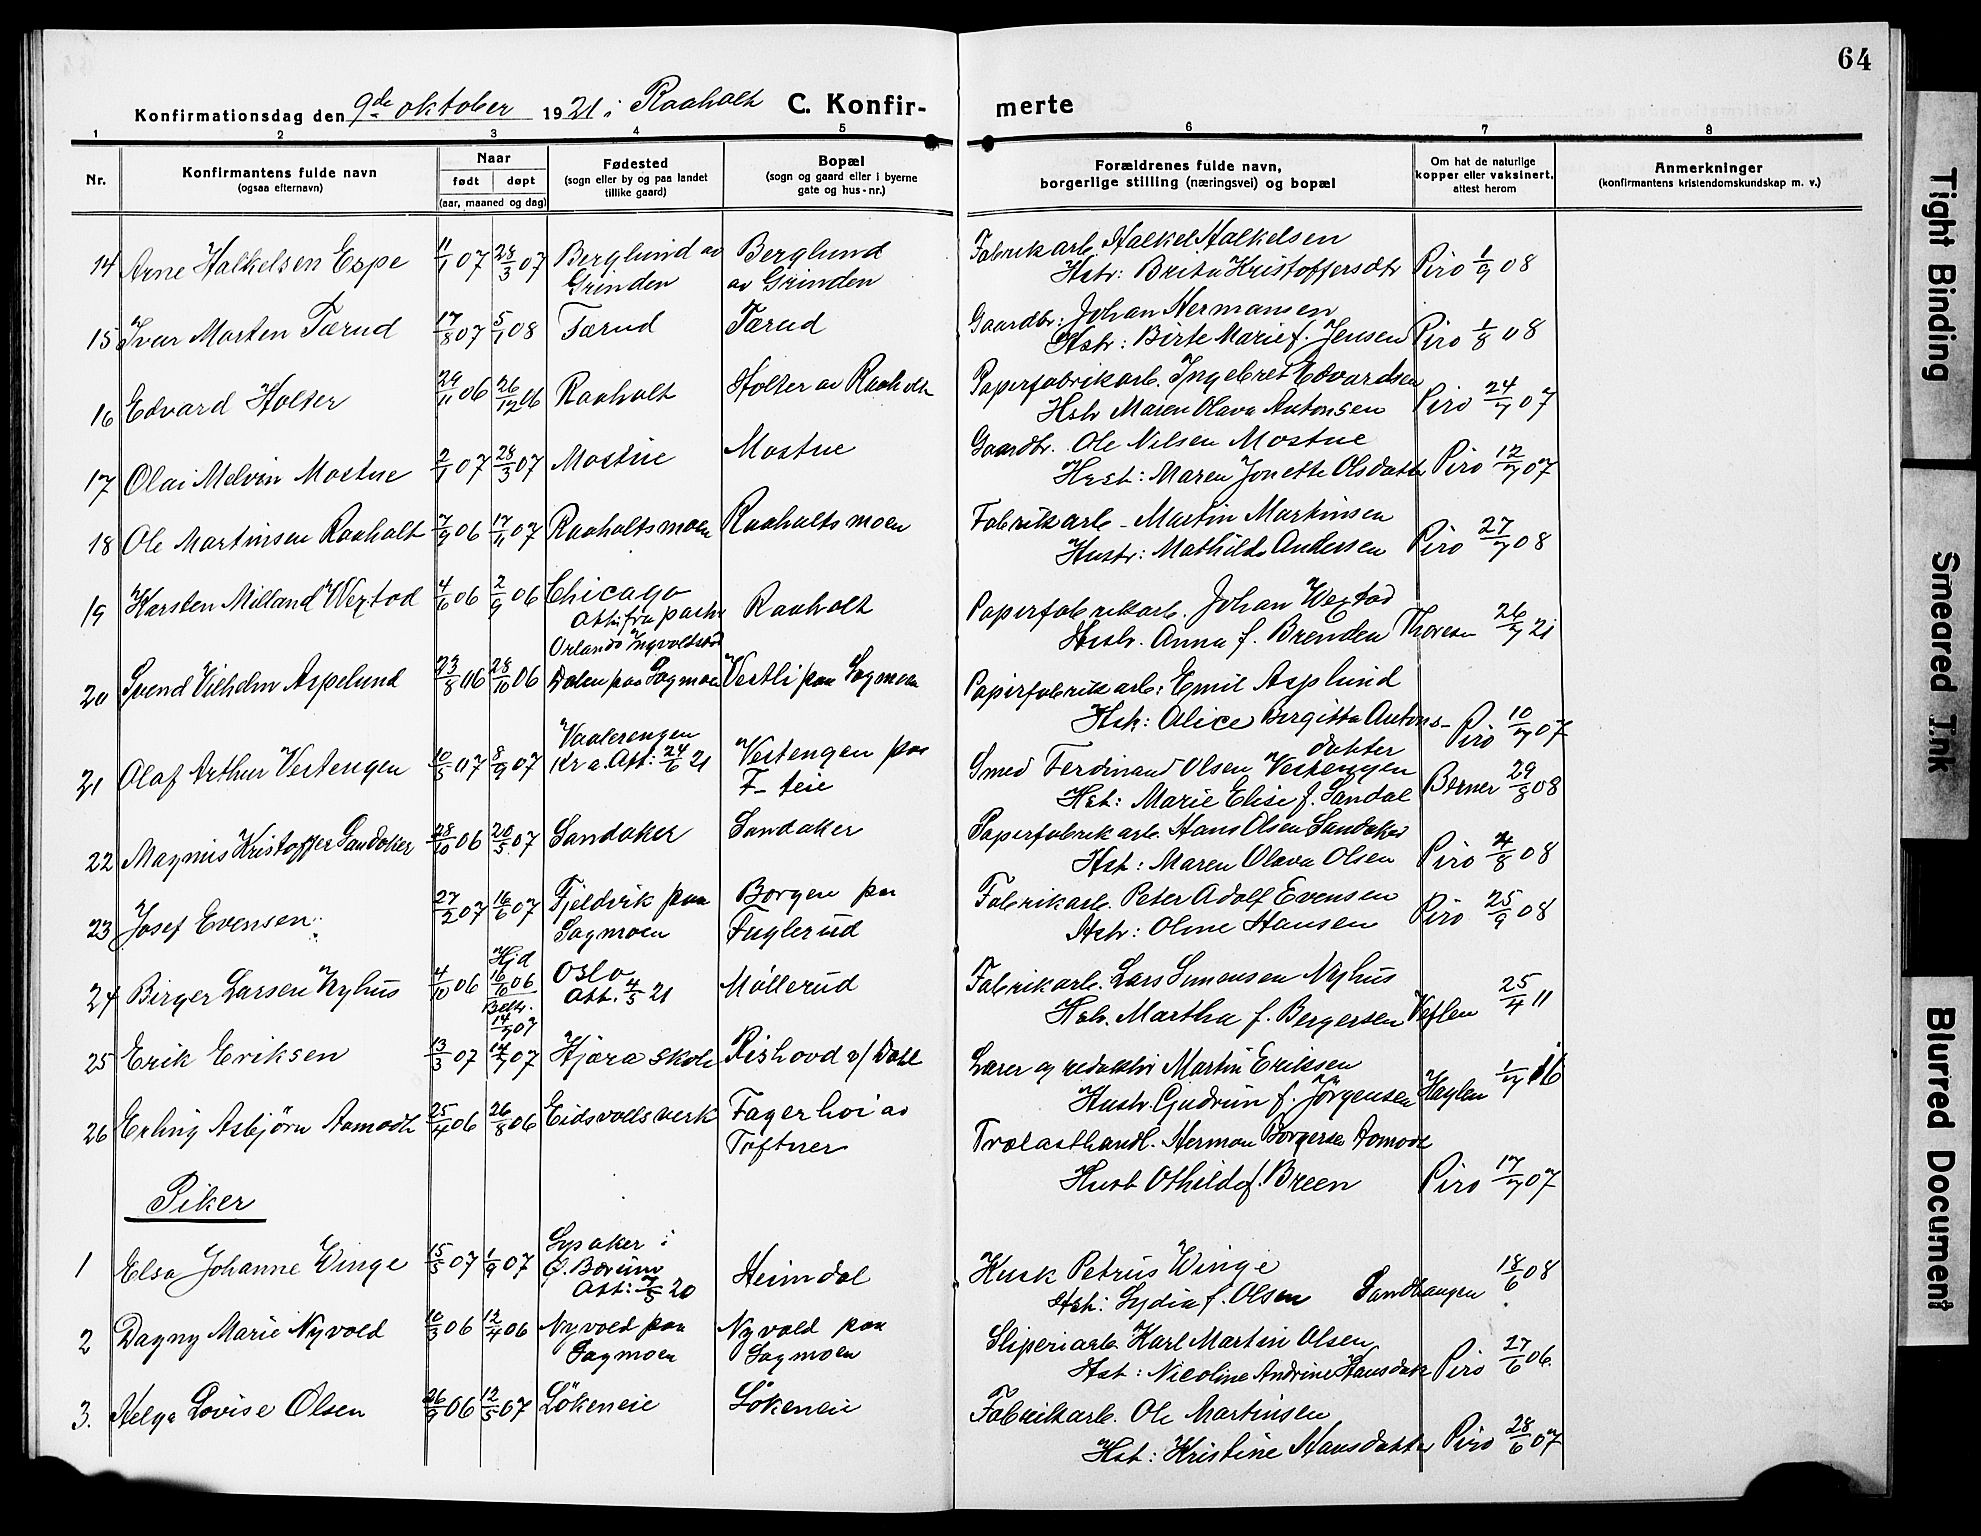 64
Konfirmationsdag den 9de oktober 1921 i Raaholt C. Konfir- merte
1 2 3 4 5 6 7 8
Nr. Konfirmantens fulde navn (ogsaa efternavn) Naar født døpt (aar, maaned og dag) Fødested (sogn eller by og paa landet tillike gaard) Bopæl (sogn og gaard eller i byerne gate og hus-nr.) Forældrenes fulde navn, borgerlige stilling (næringsvei) og bopæl Om hat de naturlige kopper eller vaksinert, attest herom Anmerkninger (konfirmantens kristendomskundskap m. v.)
14 Arne Halkelsen Espe 11/1 07 28/3 07 Berglund av Grinden Berglund av Grinden Fabrikarb. Halkel Halkelsen Piro 1/9 08
Hstr: Brita Kristoffersdtr
15 Ivar Morten Tærud 17/8 07 5/1 08 Tærud Tærud Gaardbr: Johan Hermansen Piro 1/8 08
Hstr: Birte Marie f. Jensen
16 Edvard Holter 29/11 06 26/12 06 Raaholt Holter av Raaholt Papirfabrikarb. Ingebret Edvardsen Piro 24/7 07
Hstr Maren Olava Antonsen
17 Olai Melvin Mostue 2/1 07 28/3 07 Mostue Mostue Gaardbr. Ole Nilsen Mostue Piro 12/7 07
Hust: Maren Jonette Olsdatter
18 Ole Martinsen Raaholt 7/9 06 17/11 07 Raaholtsmoen Raaholtsmoen Fabrikarb - Martin Martinsen Piro 27/7 08
Hustr: Mathilde Andersen
19 Karsten Milland Wextod 4/6 06 2/9 06 Chicago Att. fra pastor Orlando Ingvoldstad Raaholt Papirfabrikarb. Johan Wextod Thoresen 26/7 21
Hstr. Anna f. Brenden
20 Svend Vilhelm Aspelund 23/8 06 28/10 06 Dalen paa Sagmoen Vestli paa Sagmoen Papirfabrikarb: Emil Asplund Piro 10/7 07
Hst: Alice Birgitta Antonsdatter
21 Olaf Arthur Vestengen 10/5 07 8/9 07 Vaalerengen Kr.a. Att: 24/6 21 Vestengen paa F-teie Smed Ferdinand Olsen Vestengen Berner 29/8 08
Hst: Marie Elise f. Sandal
22 Magnus Kristoffer Sandaker 28/10 06 20/5 07 Sandaker Sandaker Papirfabrikarb. Hans Olsen Sandaker Piro 4/8 08
Hst: Maren Olava Olsen
23 Josef Evensen 27/2 07 16/6 07 Fjeldvik paa Sagmoen Borgen paa Fuglerud Fabrikarb. Peter Adolf Evensen Piro 25/9 08
Hstr: Oline Hansen
24 Birger Larsen Nyhus 4/10 06 Hjd 16/6 06 Bekr. 14/7 07 Oslo Att. 4/5 21 Møllerud Fabrikarb. Lars Simensen Nyhus Veflen 25/4 11
Hstr. Martha f. Bergersen
25 Erik Eriksen 13/3 07 14/7 07 Hjæra skole Rishovd v/ Dahl Lærer og redaktør Martin Eriksen Haglen 1/7 16
Hustr. Gudrun f. Jørgensen
26 Erling Asbjørn Aamodt 25/4 06 26/8 06 Eidsvolls verk Fagerhoi av Toftner Trælasthandl. Herman Borgersen Aamodt
Hust Othilde f. Breen Piro 17/7 07
Piker
1 Elsa Johanne Winge 15/5 07 1/9 07 Lysaker i Ø. Bærum Att: 7/5 20 Heimdal Kusk Petrus Winge Sandhaugen 18/6 08
Hst: Lydia f. Olsen
2 Dagny Marie Nyvold 10/3 06 12/4 06 Nyvold paa Sagmoen Nyvold paa Sagmoen Sliperiarb. Karl Martin Olsen Piro 27/6 06.
Hst: Nicoline Andrine Hansdatr
3. Helga Lovise Olsen 26/9 06 12/5 07 Løkeneie Løkeneie Fabrikarb. Ole Martinsen Piro 28/6 07
Hst: Kristine Hansdatter
Tight Binding
Smeared Ink
Blurred Document